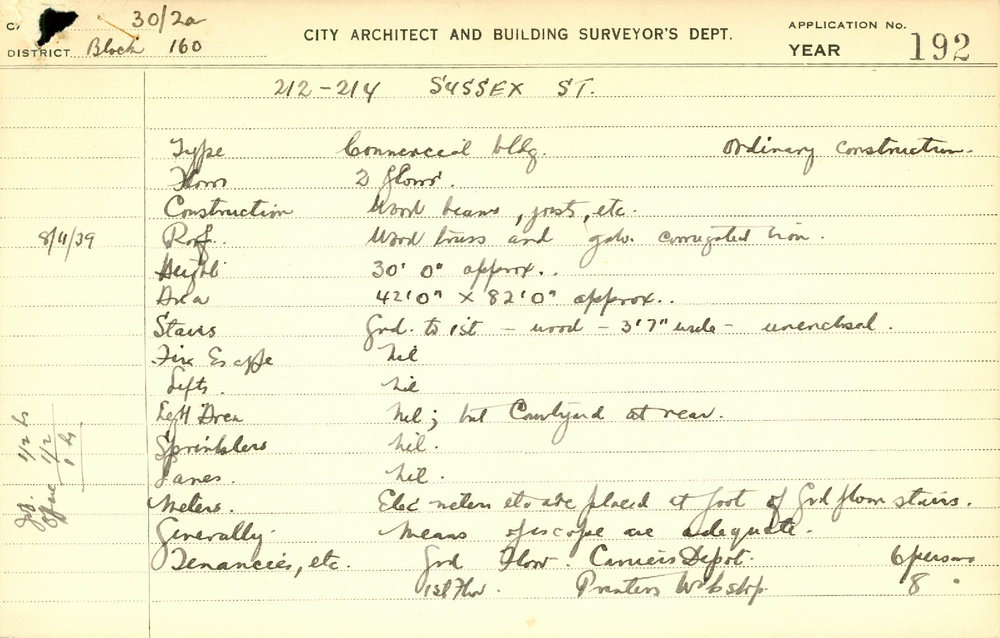 30/2a
CITY ARCHITECT AND BUILDING SURVEYOR'S DEPT.
APPLICATION No.
DISTRICT Block 160
YEAR 192
212-214 SUSSEX ST.
Type Commercial bldg. Ordinary construction.
Floors 2 floors.
Construction Wood beams, joists, etc.
8/4/39 Roof. Wood truss and galv. corrugated iron.
Height 30' 0" approx..
Area 42'0" X 82'0" approx..
Stairs Grd. to 1st - wood - 3'7" wide - unenclosed.
Fire Escape nil
Lifts. nil
Light Area Nil; but Courtyard at rear.
Sprinklers Nil.
Lanes. Nil.
Meters. Elec meters etc are placed at foot of Grd floor stairs.
Generally. Means of escape are adequate.
Tenancies, etc. Grd Floor. Carriers Depot. 6 persons
1st Flor. Printers Wkshp. 8 "
Job. 1/2 hr
Office 1/2
1 hr